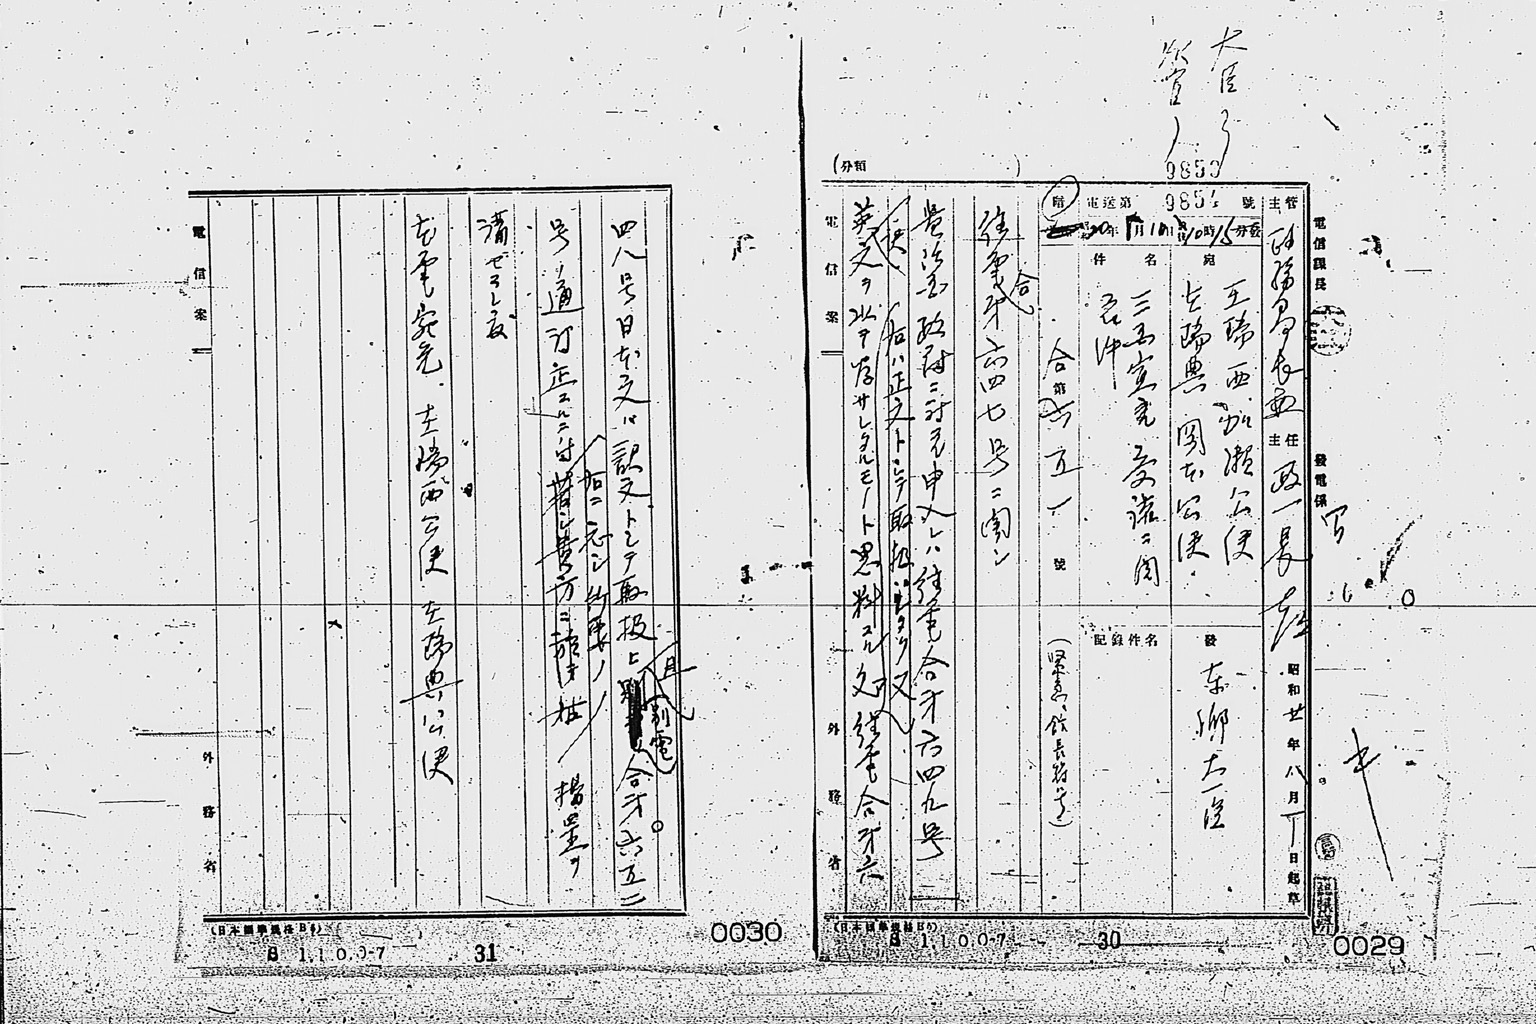 大臣
次官
9853
9854
(分類 )
電信課長
發電係
主管
政務局長
主任
政一長
昭和廿年八月 日起草
電送第 號
暗
20年8月10日 10時15分發
宛
在瑞西加瀬公使
在瑞典岡本公使
發
東郷大臣
件名
三国宣言受諾ニ関
スル件
記録件名
(緊急、館長符号)
合第六五一號
往電合第六四七号ニ関シ
貴任国政府ニ対スル申入レハ往電合第六四九号
英文
右ハ正文トシテ取扱
英文ヲ以テ為サレタルモノト思料スル処往電合第六
電信案
外務省
(日本標準規格B5)
B 1.1.0.0-7
30
0029
四八号日本文ハ訳文トシテ取扱ヒ
且
別電
合第六五二
号ノ通訂正スルニ付
右ニ応シ必要ノ
措置ヲ
講ゼラレ度
本電宛先、在瑞西公使 在瑞典公使
電信案
外務省
(日本標準規格B5)
B 1.1.0.0-7
31
0030